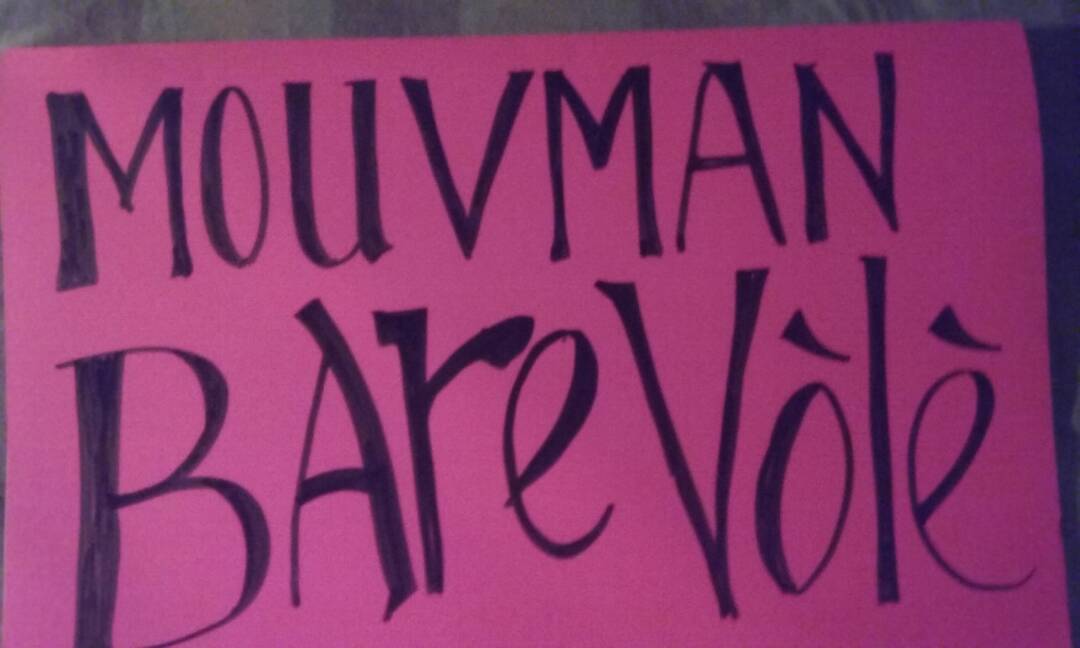 MOUVMAN
BAreVòlè